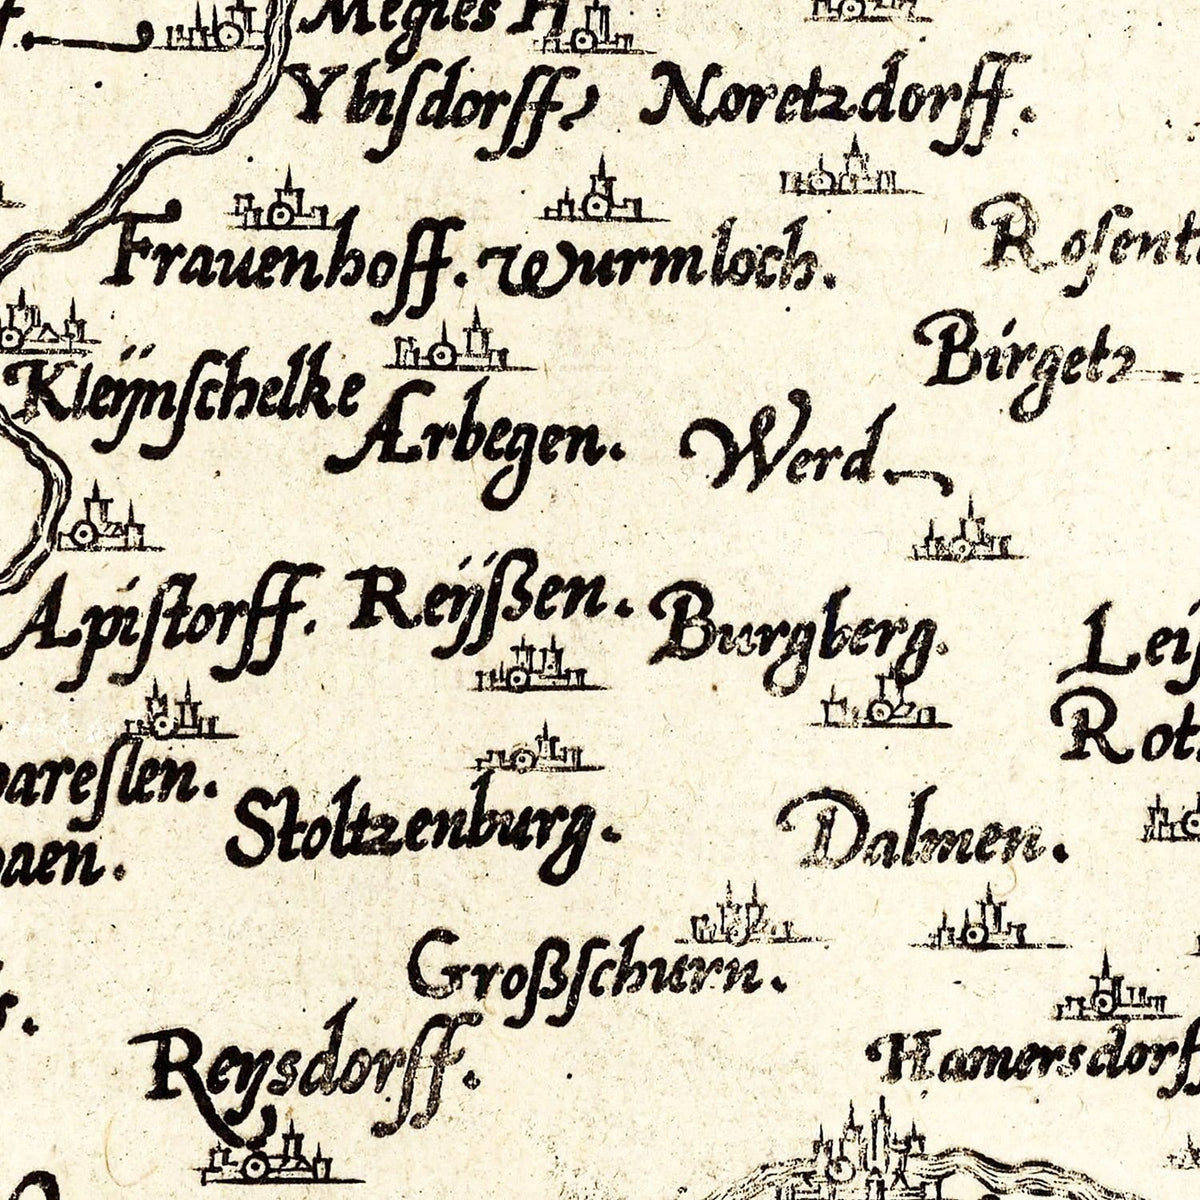 Megies H
Ybisdorff
Noretzdorff.
Frauenhoff.
Wurmloch.
Rosent
Birgetz
Kleijnschelke
Ærbegen.
Werd.
Apistorff.
Reijßen.
Burgberg.
Leis
Rot
areslen.
Stoltzenburg.
Dalmen.
aen.
Großschurn.
s.
Reysdorff.
Hamersdorff